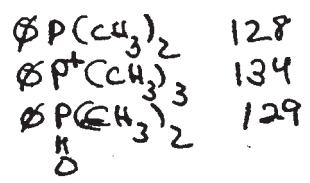 φP(CH₃)₂ 128
φP⁺(CH₃)₃ 134
φP(CH₃)₂ 129
‖
O